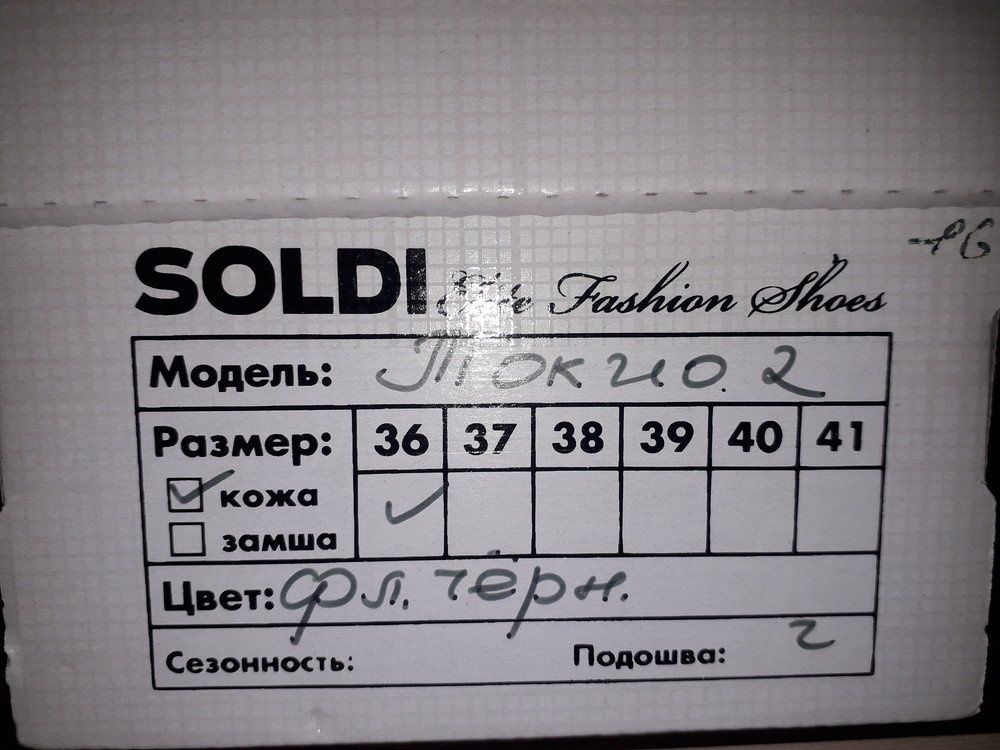 SOLDI Fashion Shoes
Модель: Токио. 2
Размер: 36 37 38 39 40 41
кожа
замша
Цвет: Фл. чёрн.
Сезонность: Подошва: